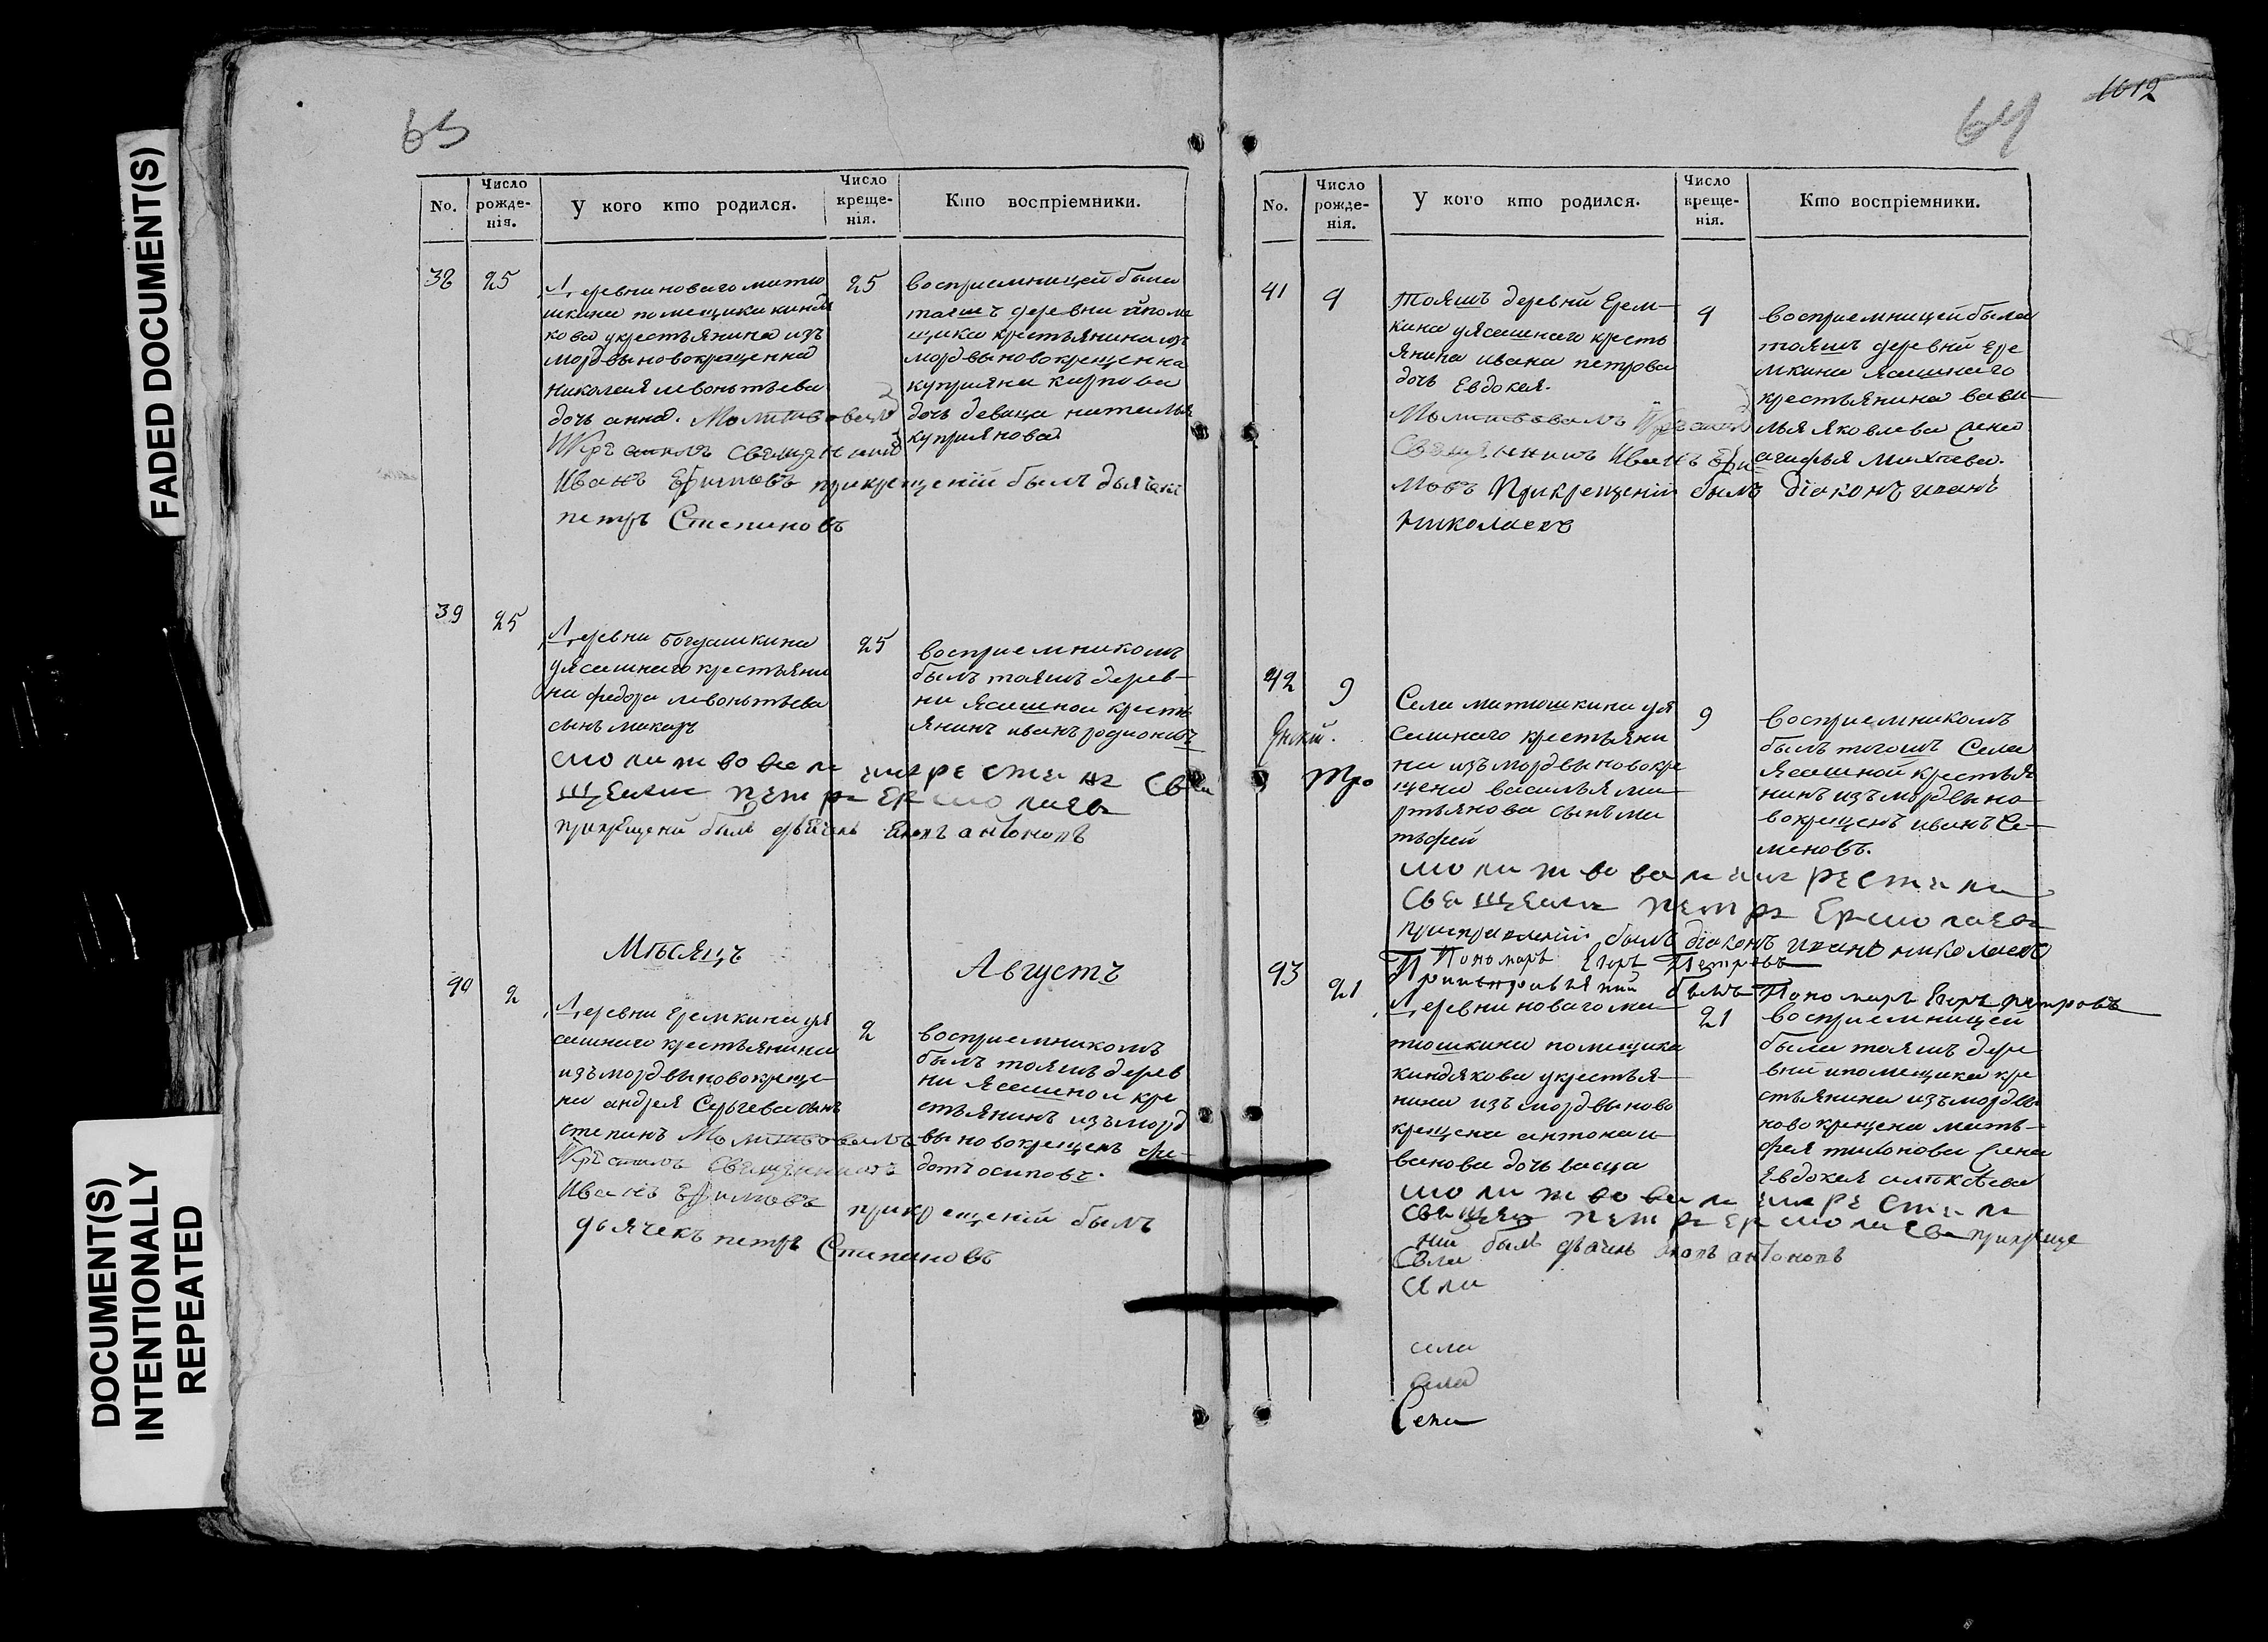 FADED DOCUMENT(S)
DOCUMENT(S)
INTENTIONALLY
REPEATED
63
No.
Число рожде-нія.
У кого кто родился.
Число креще-нія.
Кто воспріемники.
38
25
Деревни новаго матю
шкина помещика киндя
кова укрестьянина изъ
мордвы новокрещенна
николая левонтьева
дочь анна. Молитвовалъ
Икрестилъ священникъ
Иванъ Ефимовъ прикрещеніи былъ дьячекъ
петръ Степановъ
25
восприемницей была
тояшъ деревни ипоме
щика крестьянина изъ
мордвы новокрещенна
куприяна карпова
дочь девица наталья
куприянова
39
25
Деревни богдашкина
уясашнаго крестьяни
на федора левонтьева
сынъ макаръ
молитвовалъ икрестилъ свя
щенникъ петръ Ермолаевъ
прикрещени былъ дьячекъ яковъ антоновъ
25
восприемникомъ
былъ тояшъ дерев-
ни ясашной кресть
янинъ иванъ родионовъ
Мѣсяцъ
Августъ
40
2
Деревни Еремкина уя
сашнаго крестьянина
изъ мордвы новокреще-
на андрея Сергева сынъ
степанъ Молитвовалъ
Икрестилъ священникъ
Иванъ Ефимовъ прикрещеніи былъ
дьячекъ петръ Степановъ
2
восприемникомъ
былъ тояшъ дерев
ни ясашной кре
стьянинъ изъ морд
вы новокрещенъ фе-
дотъ осиповъ.
1012
64
No.
Число рожде-нія.
У кого кто родился.
Число креще-нія.
Кто воспріемники.
41
9
Тояшъ деревни Ерем-
кина уясашнаго кресть
янина ивана петрова
дочь Евдокея.
Молитвовалъ Икрестилъ
Священникъ Иванъ Ефи-
мовъ Прикрещеніи былъ діаконъ иванъ
николаевъ
9
восприемницей была
тояшъ деревни Ере
мкина ясашнаго
крестьянина васи-
лья яковлева жена
агафья михаева.
42
9
Села матюшкина уя
сашнаго крестьяни
на изъ мордвы новокре
щена василья ма-
ртьянова сынъ ма
тьфей
молитвовалъ икрестилъ
священникъ петръ Ермолаевъ
9
восприемникомъ
былъ тогошъ Села
ясашной крестья
нинъ изъ мордвы но-
вокрещенъ иванъ Се-
меновъ.
былъ діаконъ иванъ николаевъ
Пономаръ Егоръ Петровъ
былъ Пономаръ Егоръ петровъ
43
21
Деревни новаго ма-
тюшкина помещика
киндякова укрестья-
нина изъ мордвы ново
крещена антона и-
ванова дочь васса
молитвовалъ икрестилъ
священ петръ Ермолаевъ прикреще
нии былъ дьячекъ яковъ антоновъ
21
восприемницей
была тояшъ дере
вни ипомещика кре
стьянина изъ мордвы
новокрещена матъ-
фея тихонова жена
Евдокея алтксѣева
Села
села
села
села
Села